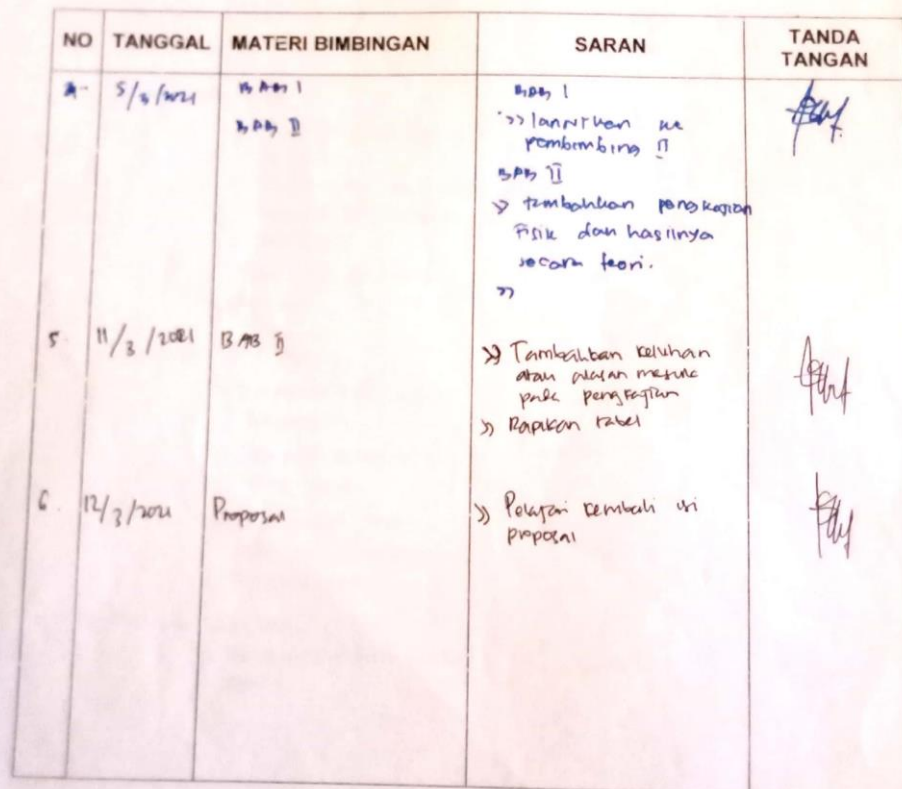 NO TANGGAL MATERI BIMBINGAN SARAN TANDA TANGAN
4. 5/3/2021 BAB I BAB I
BAB II >> lanjutkan ke
pembimbing II
BAB II
>> tambahkan pengkajian
Fisik dan hasilnya
secara teori.
>>
5. 11/3/2021 BAB II >> Tambahkan keluhan
atau alasan masuk
pada pengkajian
>> Rapikan tabel
6. 12/3/2021 Proposal >> Pelajari kembali isi
proposal